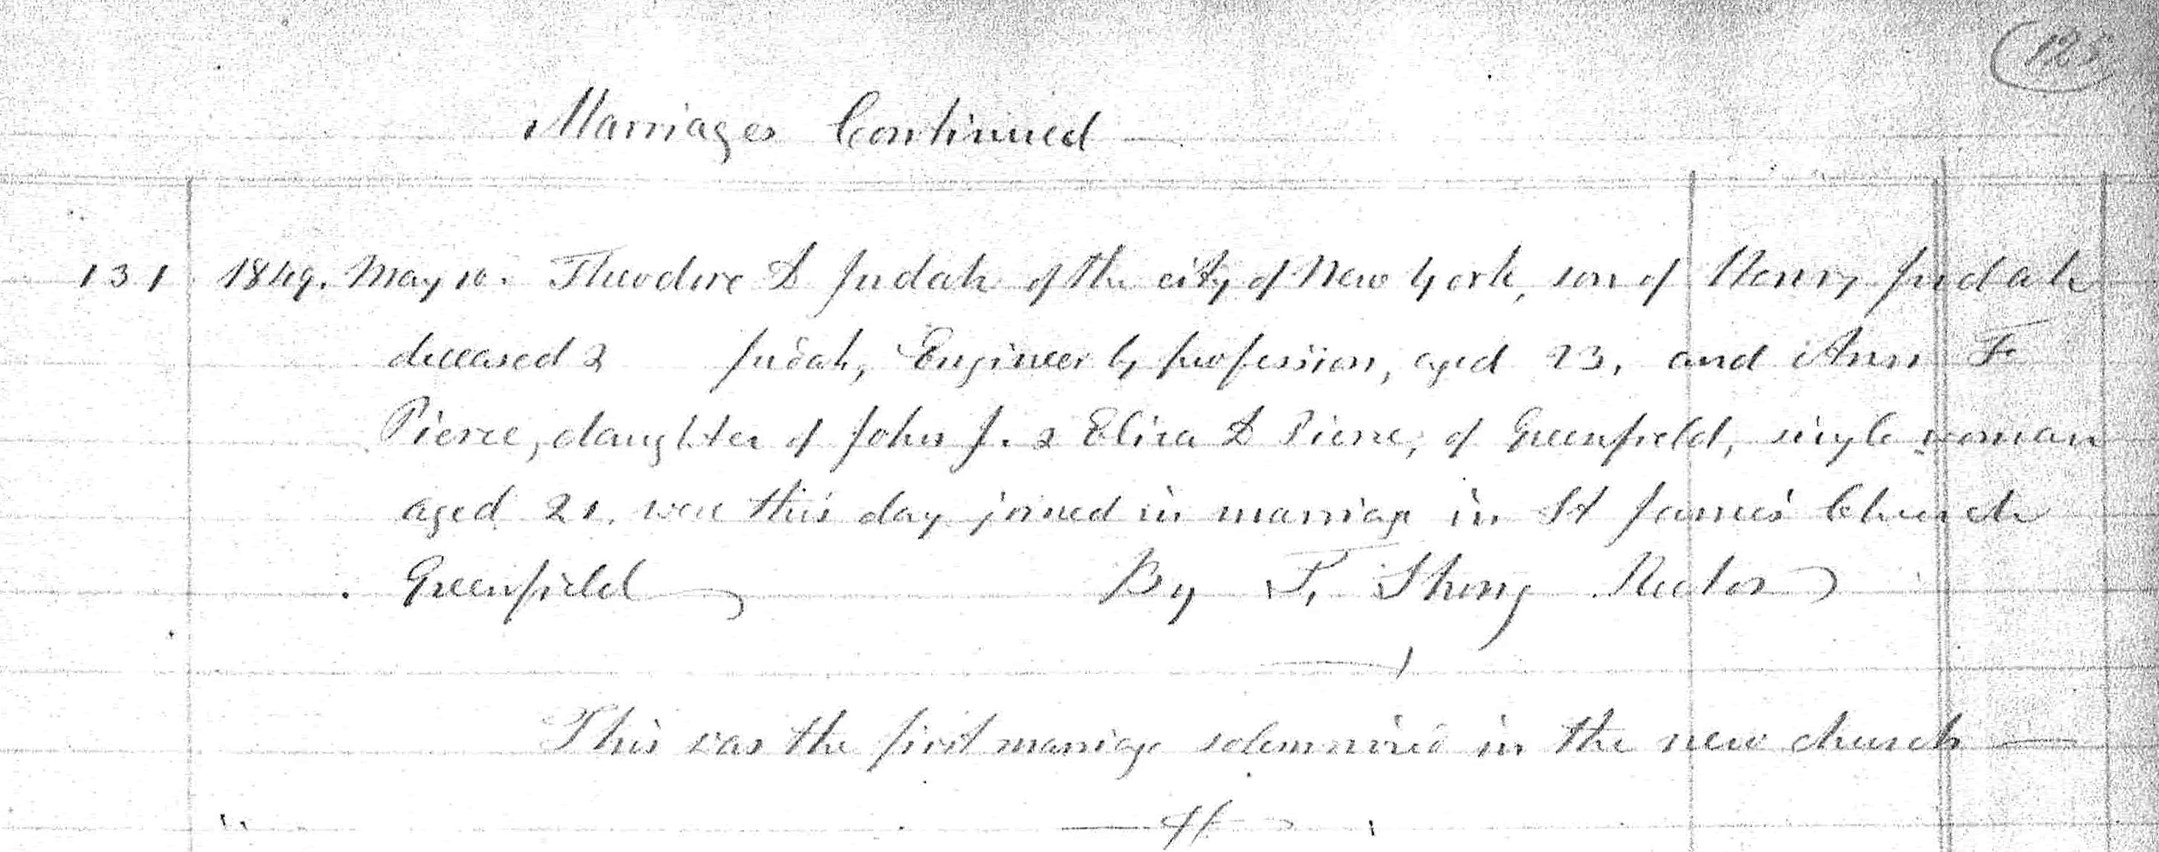 Marriages Continued
131 1849. May 10. Theodore D Judah of the city of New York, son of Henry Judah
deceased & Judah, Engineer by profession, aged 23, and Ann F
Pierce, daughter of John J. & Eliza D Pierce, of Greenfield, single woman
aged 21. were this day joined in marriage in St James' Church
Greenfield By T. Strong Rector
This was the first marriage solemnized in the new church